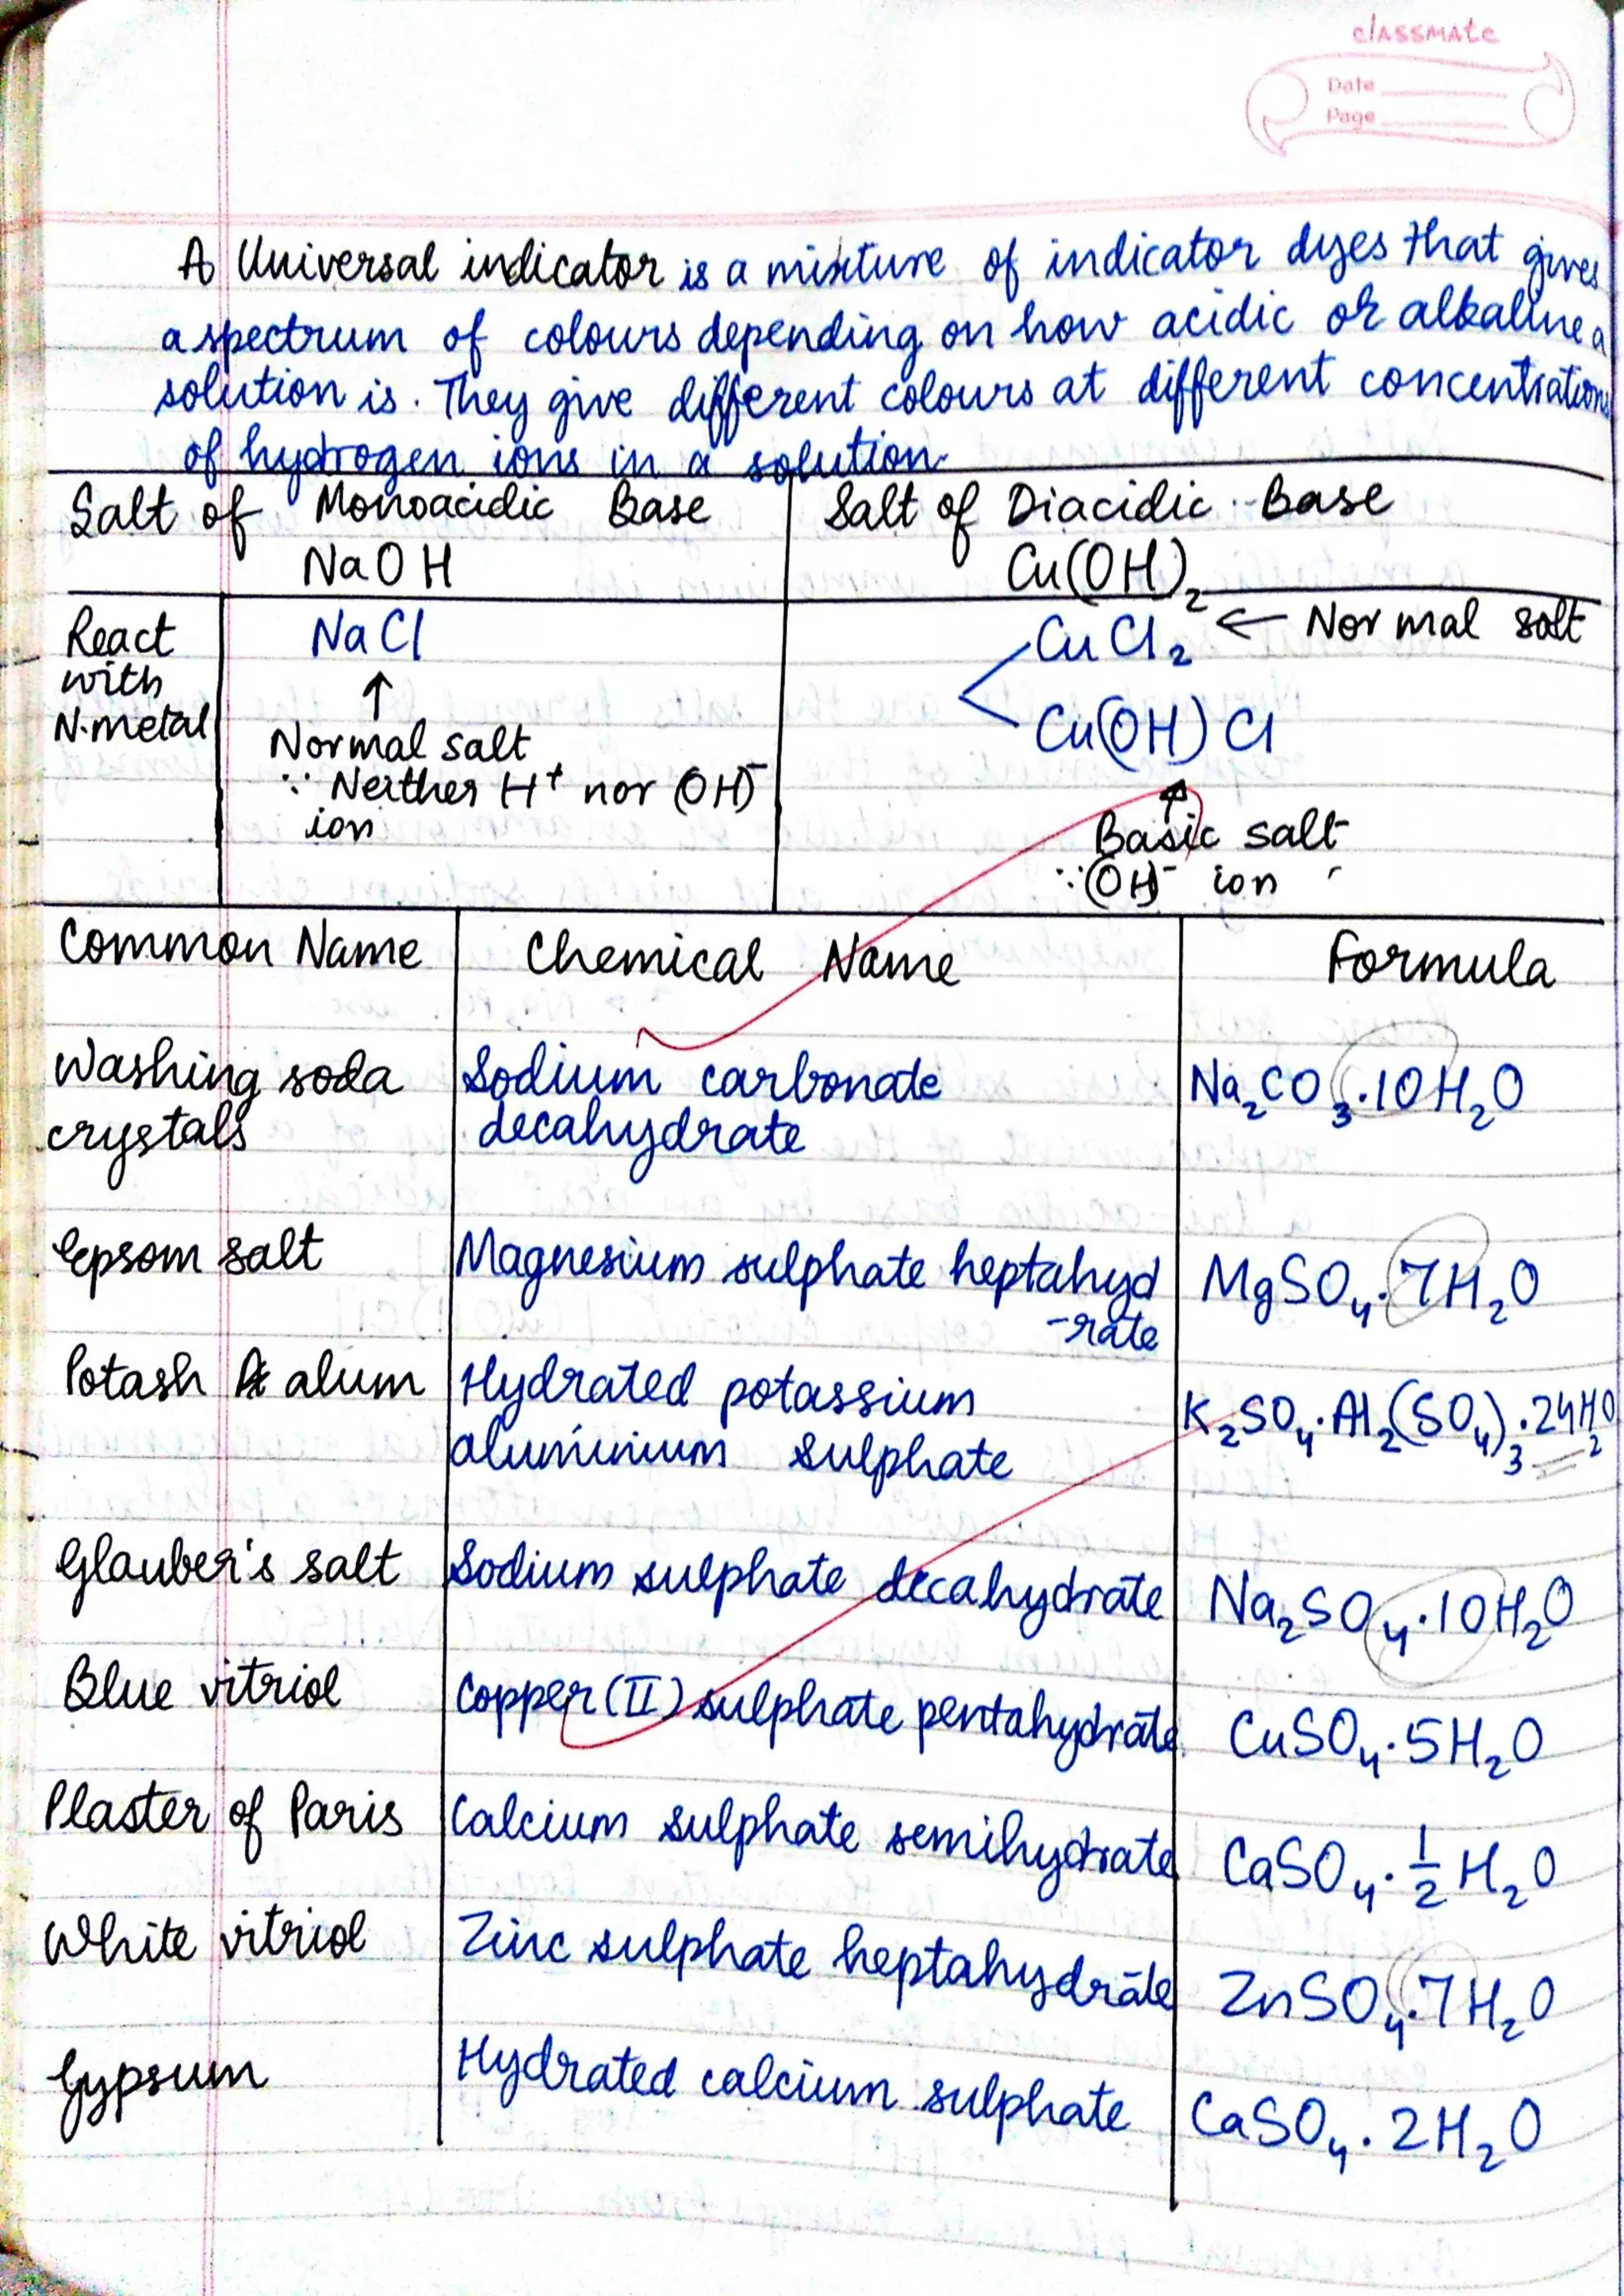 classmate
Date
Page
A Universal indicator is a mixture of indicator dyes that gives
a spectrum of colours depending on how acidic or alkaline a
solution is. They give different colours at different concentrations
of hydrogen ions in a solution.
Salt of Monoacidic Base Salt of Diacidic Base
NaOH Cu(OH)₂
React with N.metal
NaCl
↑
Normal salt
∵ Neither H⁺ nor (OH)⁻
ion
CuCl₂ ← Normal salt
Cu(OH)Cl
↑
Basic salt
∵ (OH)⁻ ion
Common Name Chemical Name Formula
Washing soda Sodium carbonate Na₂CO₃·10H₂O
crystals decahydrate
Epsom salt Magnesium sulphate heptahyd MgSO₄·7H₂O
-rate
Potash alum Hydrated potassium K₂SO₄·Al₂(SO₄)₃·24H₂O
aluminium sulphate
Glauber's salt Sodium sulphate decahydrate Na₂SO₄·10H₂O
Blue vitriol Copper (II) sulphate pentahydrate CuSO₄·5H₂O
Plaster of Paris Calcium sulphate semihydrate CaSO₄·½H₂O
White vitriol Zinc sulphate heptahydrate ZnSO₄·7H₂O
Gypsum Hydrated calcium sulphate CaSO₄·2H₂O